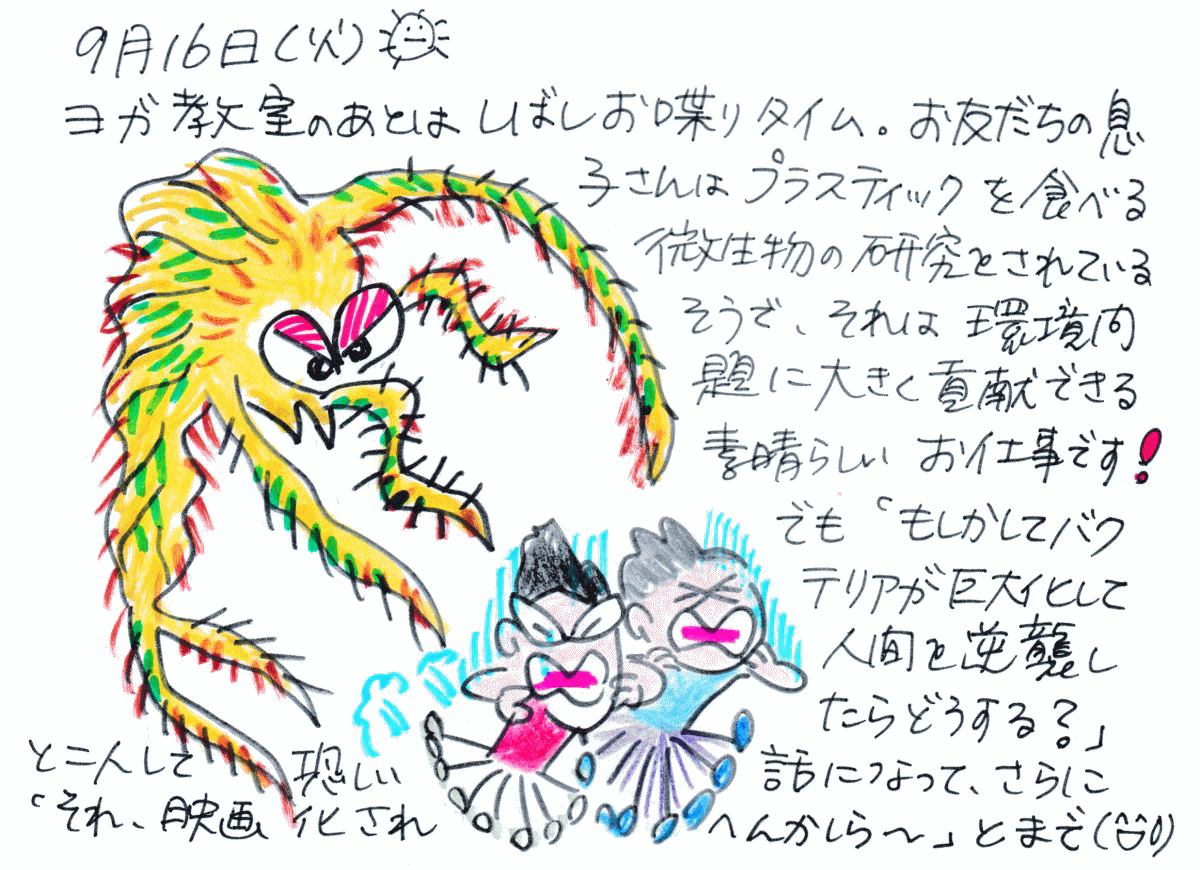 9月16日(火)
ヨガ教室のあとはしばしお喋りタイム。お友だちの息
子さんはプラスティックを食べる
微生物の研究をされている
そうで、それは環境問
題に大きく貢献できる
素晴らしいお仕事です!
でも「もしかしてバク
テリアが巨大化して
人間を逆襲し
たらどうする?」
と二人して恐しい話になって、さらに
「それ、映画化されへんかしら〜」とまで(^^;)